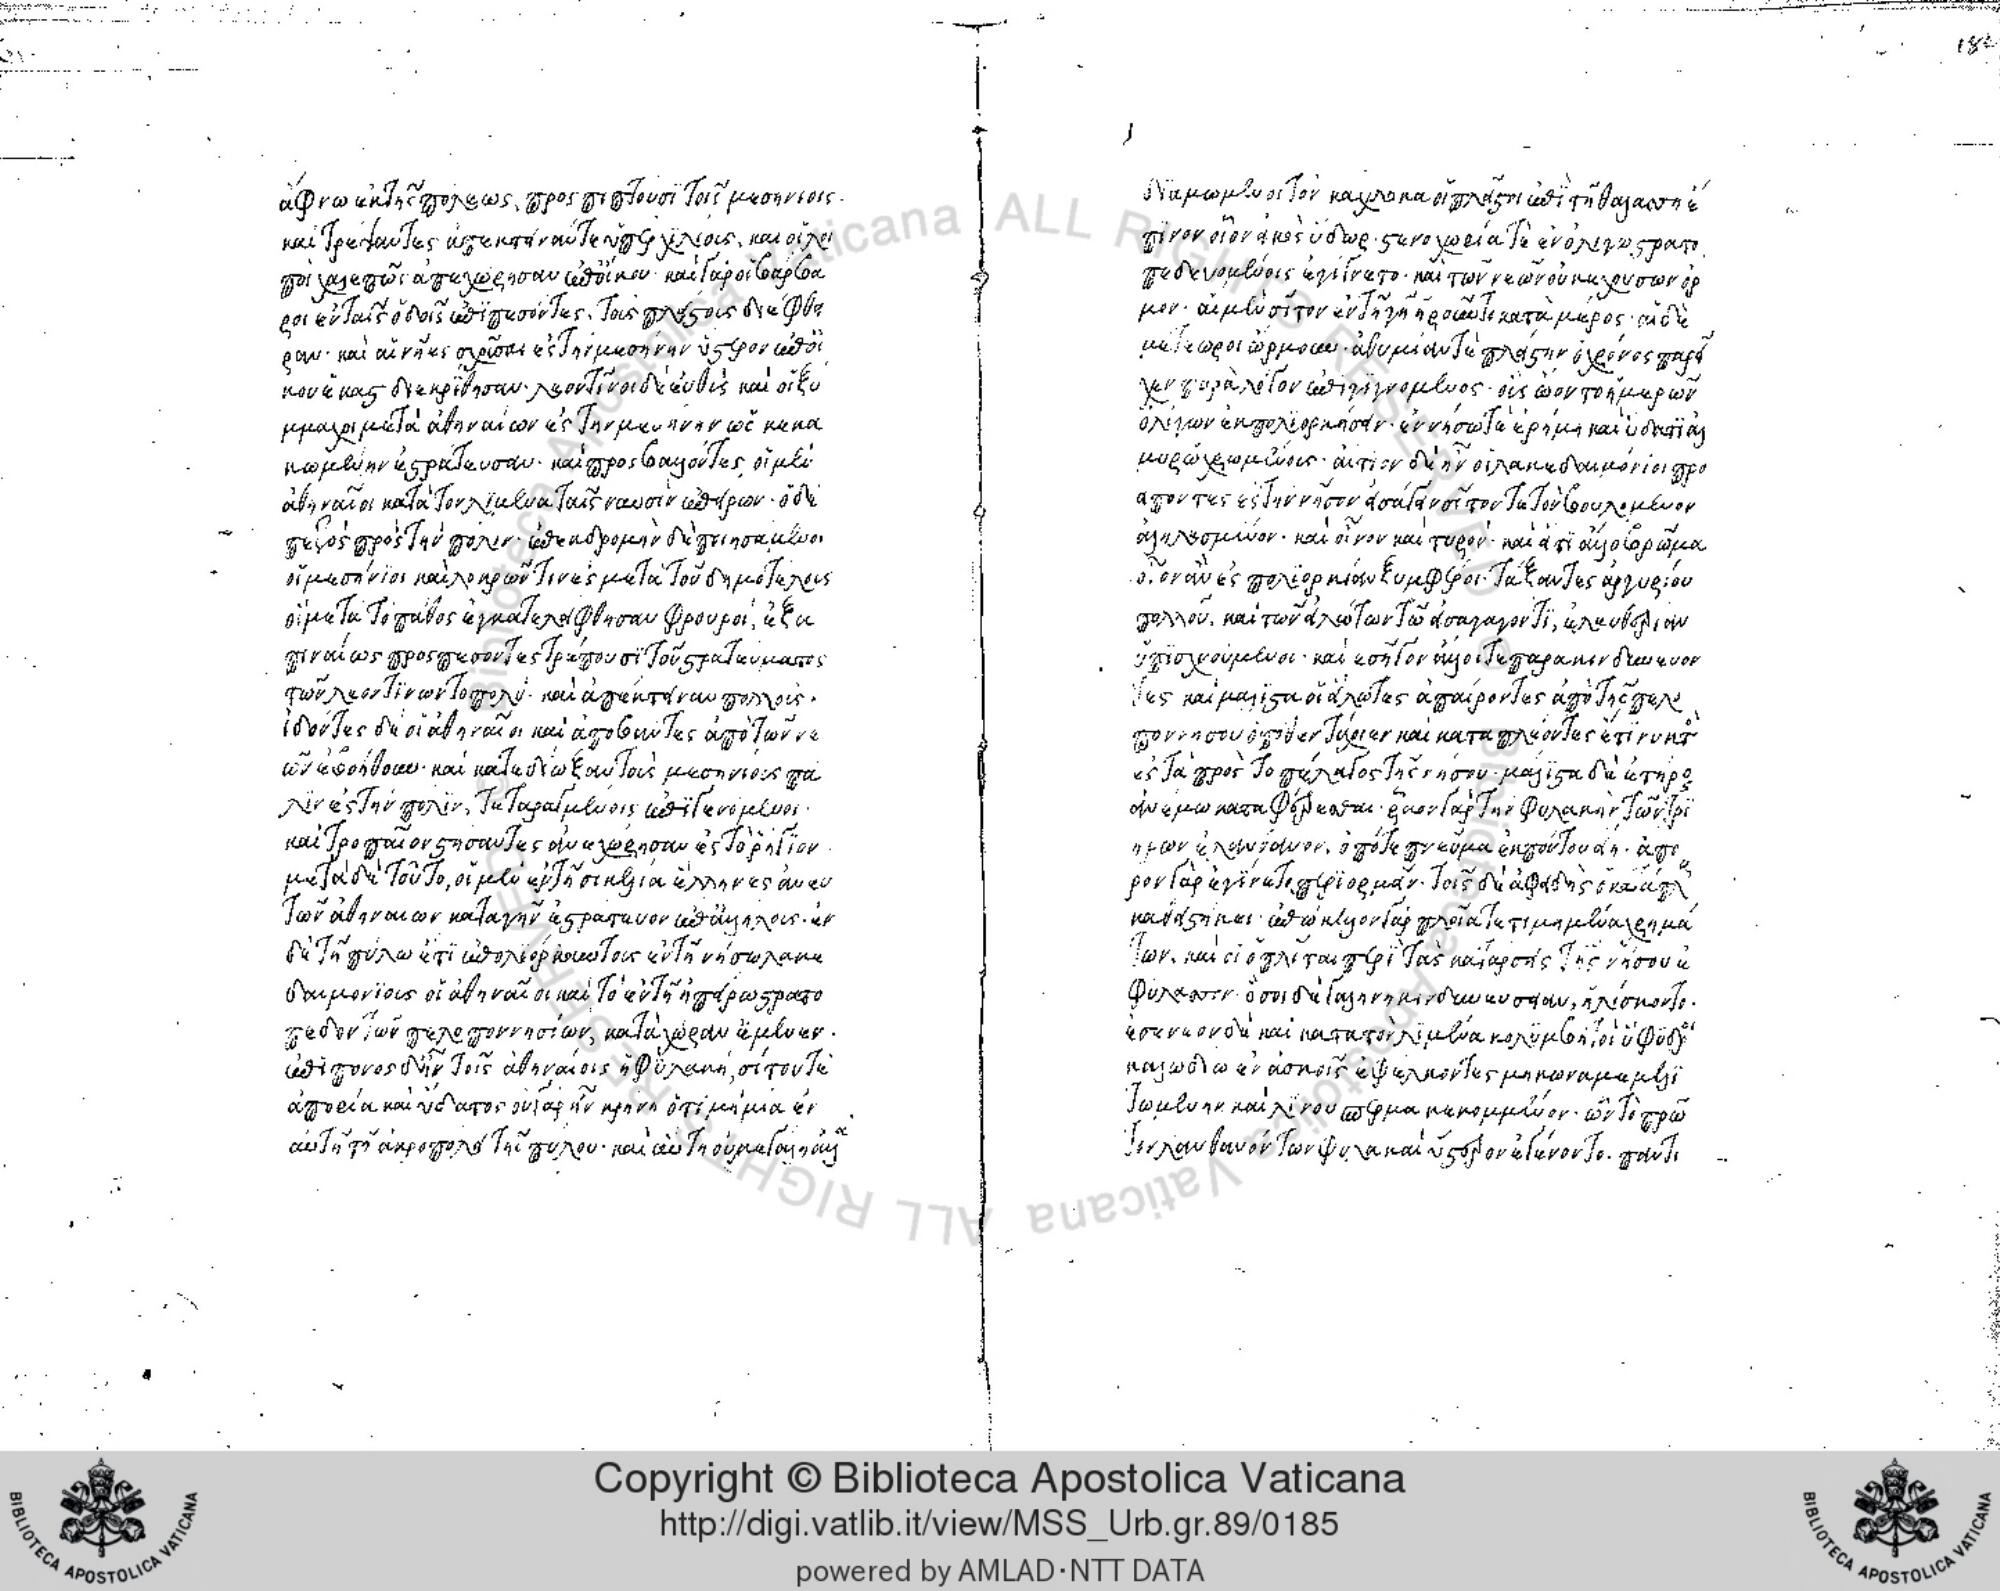 ἄφνω ἐκ τῆς πόλεως, προσπίπτουσι τοῖς μεσηνίοις·
καὶ τρέψαντες ἀπέκτειναν τε ὑπὲρ χιλίους, καὶ οἱ λοι
ποὶ χαλεπῶς ἀπεχώρησαν ἐπ' οἴκου· καὶ γὰρ οἱ βάρβα
ροι ἐν ταῖς ὁδοῖς ἐπιπεσόντες, τοὺς πλείστους διέφθει
ραν· καὶ αἱ νῆες σχοῦσαι ἐς τὴν μεσήνην ὕστερον ἐπ' οἴ
κου ἕκασται διεκρίθησαν· λεοντῖνοι δὲ εὐθὺς καὶ οἱ ξύ
μμαχοι μετὰ ἀθηναίων ἐς τὴν μεσήνην ὡς κεκα
κωμένην ἐστράτευσαν· καὶ προσβαλόντες οἱ μὲν
ἀθηναῖοι κατὰ τὸν λιμένα ταῖς ναυσὶν ἐπείρων· ὁ δὲ
πεζὸς πρὸς τὴν πόλιν· ἐπεκδρομὴν δὲ ποιησάμενοι
οἱ μεσήνιοι καὶ λοκρῶν τινὲς μετὰ τοῦ δημοτέλους
οἳ μετὰ τὸ πάθος ἐγκατελείφθησαν φρουροὶ, ἐξα
πιναίως προσπεσόντες τρέπουσι τοῦ στρατεύματος
τῶν λεοντίνων τὸ πολὺ· καὶ ἀπέκτειναν πολλούς·
ἰδόντες δὲ οἱ ἀθηναῖοι καὶ ἀποβάντες ἀπὸ τῶν νε
ῶν ἐβοήθουν· καὶ κατεδίωξαν τοὺς μεσηνίους πά
λιν ἐς τὴν πόλιν, τεταραγμένοις ἐπιγενόμενοι·
καὶ τροπαῖον στήσαντες ἀνεχώρησαν ἐς τὸ ῥήγιον·
μετὰ δὲ τοῦτο, οἱ μὲν ἐν τῇ σικελία ἕλληνες ἄνευ
τῶν ἀθηναίων κατὰ γῆν ἐστράτευον ἐπ' ἀλλήλους· ἐν
δὲ τῇ πύλω ἔτι ἐπολιόρκουν τοὺς ἐν τῇ νήσω λακε
δαιμονίους οἱ ἀθηναῖοι καὶ τὸ ἐν τῇ ἠπείρω στρατό
πεδον τῶν πελοποννησίων, κατὰ χώραν ἔμενεν·
ἐπίπονος δ' ἦν τοῖς ἀθηναίοις ἡ φυλακὴ, σίτου τε
ἀπορία καὶ ὕδατος οὐ γὰρ ἦν κρήνη ὅτι μὴ μία ἐν
αὐτῇ τῇ ἀκροπόλει τῆς πύλου· καὶ αὐτὴ οὐ μεγάλη ἀλλὰ
διαμώμενοι τὸν κάχληκα οἱ πλεῖστοι ἐπὶ τῇ θαλάσση ἔ
πινον οἷον εἰκὸς ὕδωρ· στενοχωρία τε ἐν ὀλίγω στρατο
πεδευομένοις ἐγίγνετο· καὶ τῶν νεῶν οὐκ ἐχουσῶν ὅρ
μον· αἱ μὲν σῖτον ἐν τῇ γῇ ἡροῦντο κατὰ μέρος· αἱ δὲ
μετέωροι ὥρμουν· ἀθυμίαν τε πλείστην ὁ χρόνος παρεῖ
χεν παρὰ λόγον ἐπιγιγνόμενος· οὓς ᾤοντο ἡμερῶν
ὀλίγων ἐκπολιορκήσειν· ἐν νήσω τε ἐρήμη καὶ ὕδατι ἁλ
μυρῶ χρωμένους· αἴτιον δὲ ἦν οἱ λακεδαιμόνιοι προ
ειπόντες ἐς τὴν νῆσον ἐσάγειν σῖτον τε τὸν βουλόμενον
ἀληλεσμένον· καὶ οἶνον καὶ τυρὸν· καὶ εἴ τι ἄλλο βρῶμα
οἷον ἂν ἐς πολιορκίαν ξυμφέροι· τάξαντες ἀργυρίου
πολλοῦ, καὶ τῶν εἱλώτων τῶ ἐσαγαγόντι, ἐλευθερίαν
ὑπισχνούμενοι· καὶ ἐσῆγον ἄλλοι τε παρακινδυνεύον
τες καὶ μάλιστα οἱ εἵλωτες ἀπαίροντες ἀπὸ τῆς πελο
ποννήσου ὁπόθεν τύχοιεν καὶ καταπλέοντες ἔτι νυκτὸς
ἐς τὰ πρὸς τὸ πέλαγος τῆς νήσου· μάλιστα δὲ ἐτήρουν
ἀνέμω καταφέρεσθαι· ῥᾶον γὰρ τὴν φυλακὴν τῶν τρι
ήρων ἐλάνθανον, ὁπότε πνεῦμα ἐκ πόντου εἴη· ἄπο
ρον γὰρ ἐγίνετο περιορμεῖν· τοῖς δὲ ἀφειδὴς ὁ κατάπλους
καθεστήκει· ἐπώκελλον γὰρ πλοῖα τετιμημένα χρημά
των, καὶ οἱ ὁπλῖται περὶ τὰς κατάρσεις τῆς νήσου ἐ
φύλασσον· ὅσοι δὲ γαλήνη κινδυνεύσειαν, ἡλίσκοντο·
ἐσένεον δὲ καὶ κατὰ τὸν λιμένα κολυμβηταὶ ὕφυδροι
καλωδίω ἐν ἀσκοῖς ἐφέλκοντες μήκωνα μεμελι
τωμένην καὶ λίνου σπέρμα κεκομμένον· ὧν τὸ πρῶ
τον λανθανόντων φυλακαὶ ὕστερον ἐγένοντο· παντί
Copyright © Biblioteca Apostolica Vaticana
http://digi.vatlib.it/view/MSS_Urb.gr.89/0185
powered by AMLAD·NTT DATA